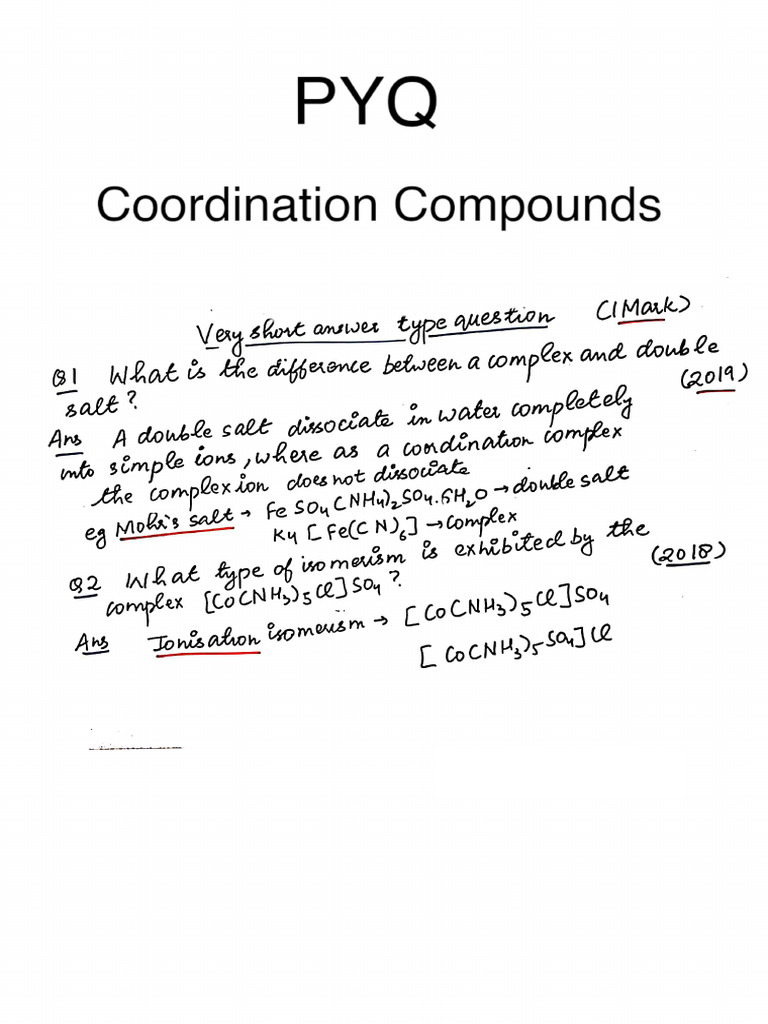 PYQ
Coordination Compounds
Very short answer type question (1 Mark)
Q1 What is the difference between a complex and double
salt? (2019)
Ans A double salt dissociate in water completely
into simple ions, where as a condination complex
the complex ion does not dissociate
eg Mohr's salt → FeSO4(NH4)2SO4.6H2O → double salt
K4[Fe(CN)6] → complex
Q2 What type of isomerism is exhibited by the
complex [Co(NH3)5Cl]SO4? (2018)
Ans Ionisation isomerism → [Co(NH3)5Cl]SO4
[Co(NH3)5SO4]Cl